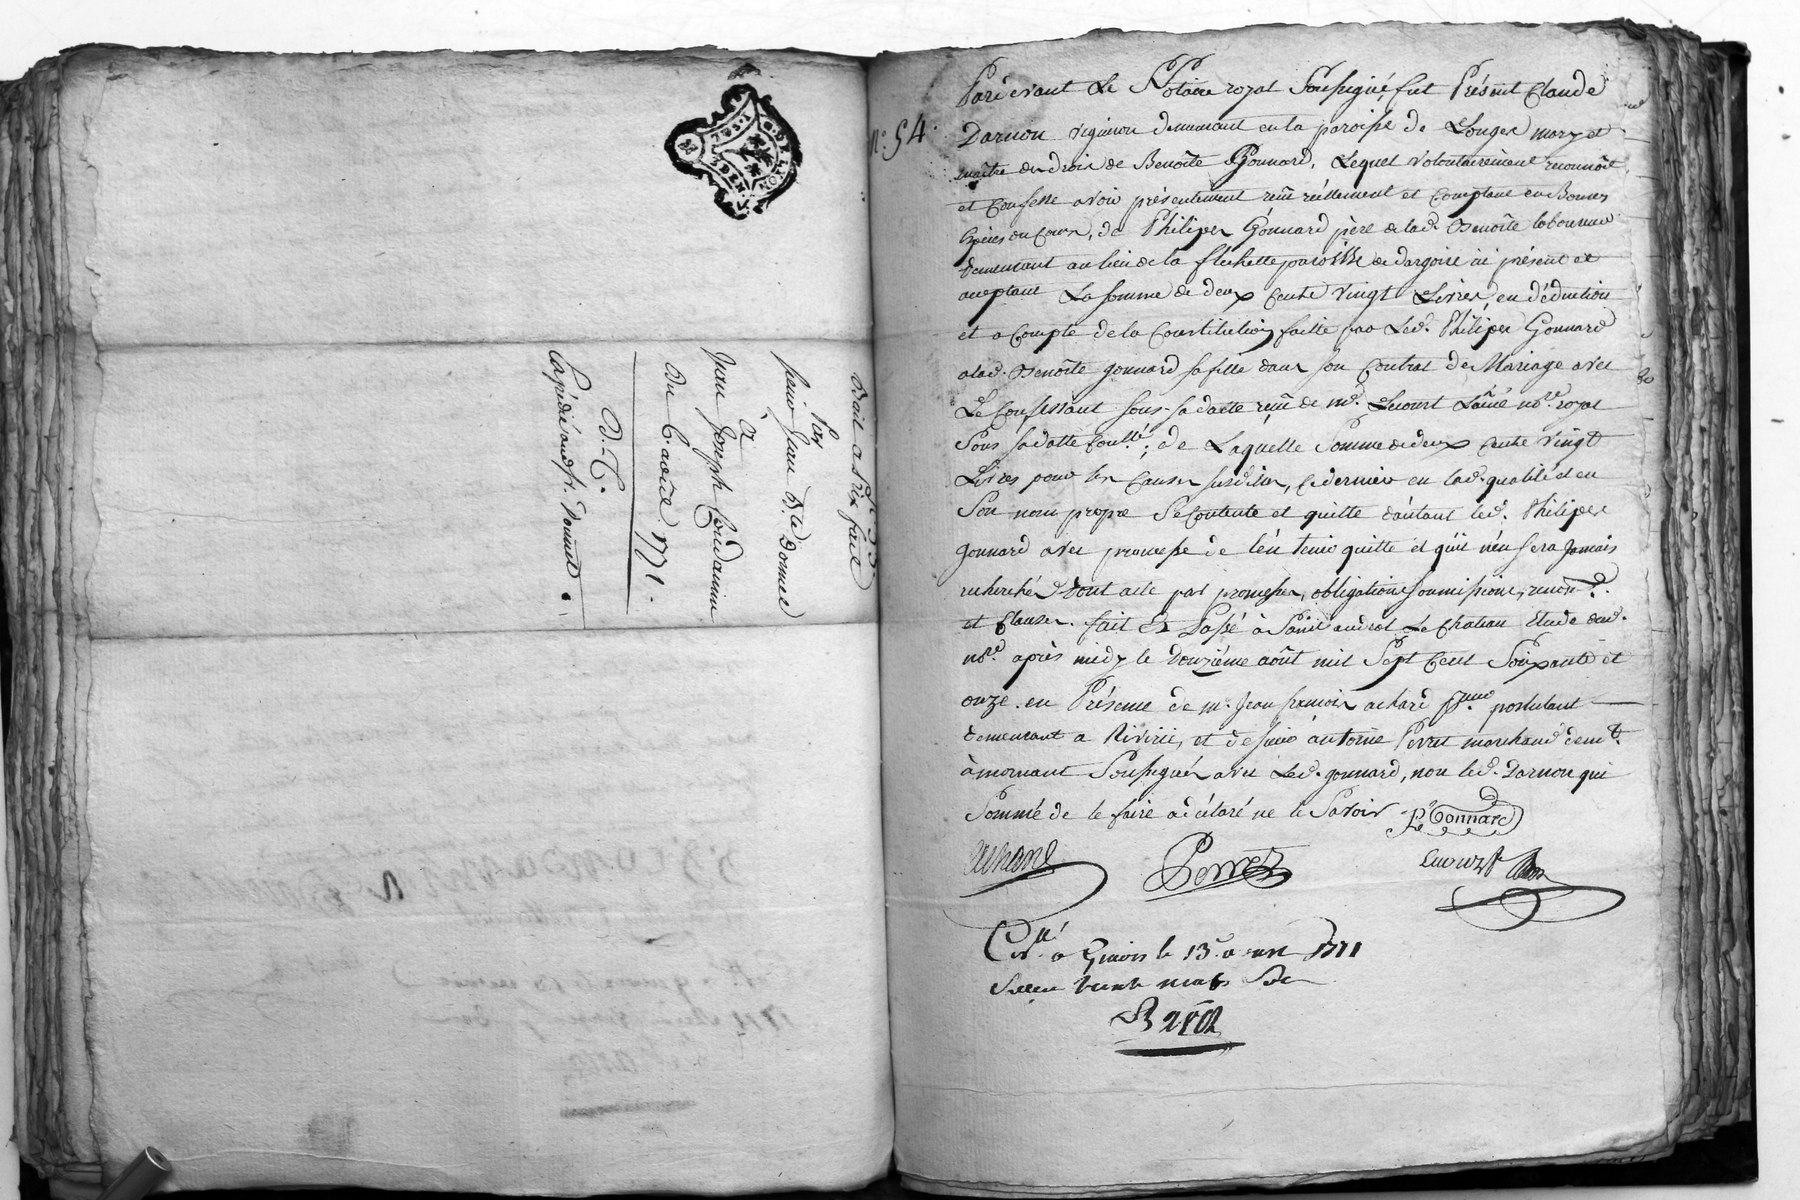 G. DE LYON
2 SOLS
8 DEN
Bail a prix fait
par
sieur Jean Donnet
a
Jean Joseph Condamin
du 6 aoüt 1771.
D. C.
Expédié aud. sr. Donnet.
n.° 54.
Pardevant Le Notaire royal Soussigné, fut Présent Claude
Darnon vigneron demeurant en la paroisse de Longes mary et
maître des droits de Benoîte Gonnard, Lequel volontairement reconnoît
et Confesse avoir présentement reçû réellement et Comptant en Bonnes
Espèces du Cours, de Philipes Gonnard père de lad. Benoîte laboureur
demeurant au lieu de la flechette paroisse de dargoire ici présent et
acceptant La somme de deux Cents vingt Livres, en déduction
et a Compte de la Constitution faitte par Led. Philipes Gonnard
a lad. Benoîte gonnard sa fille dans son Contrat de Mariage avec
Le Confessant sous sa datte reçû de me. Lecourt L'aîné nore. royal
Sous sa datte Conllé; de Laquelle Somme de deux Cents vingt
Livres pour les Causes susdites, Ce dernier en lad. qualité et en
Son nom propre Se Contente et quitte d'autant led. Philipes
gonnard avec promesse de l'en tenir quitte et qu'il n'en sera Jamais
recherché. Dont acte par promesses, obligations soumissions, renon.ons
et Clauses. fait et Passé à Saint andéol Le Chateau Etude dud.
nore. après midy le douzième août mil Sept Cent Soixante et
onze. en Présence de me. Jean françois achard postulant
demeurant a Riverie, et de sieur antoine Perret marchand demt.
à mornant Soussignés avec Led. gonnard, non led. Darnon qui
Sommé de le faire a déclaré ne le Savoir P. Gonnard
Achard Perret Lecourt
Con.llé a Givors le 13. aoust 1771
Reçu trente neuf Sols